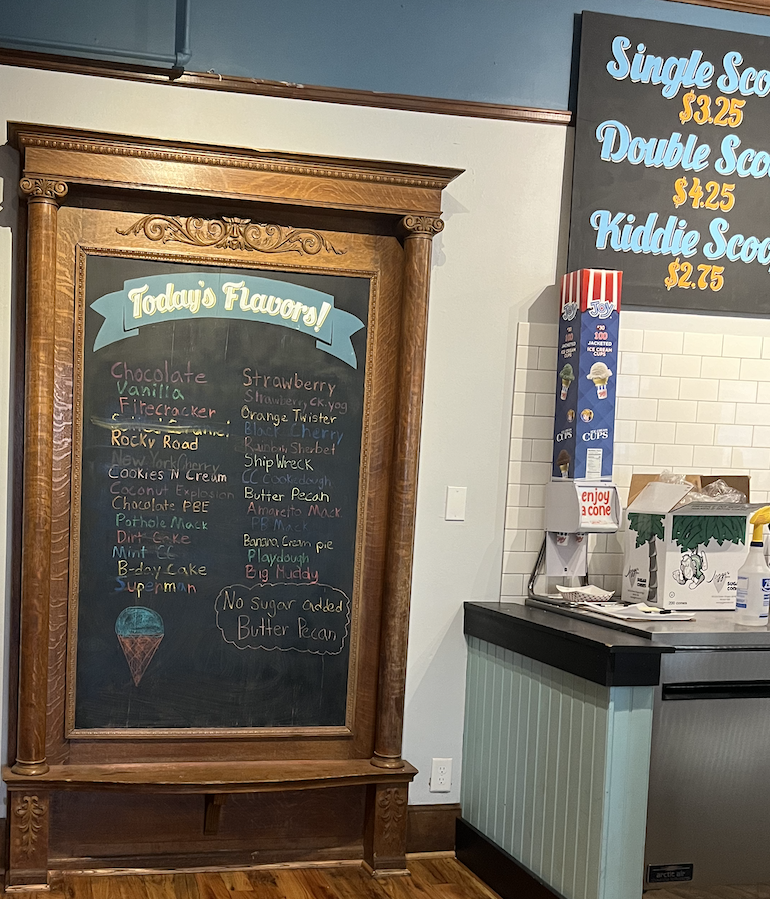 Today's Flavors!
Chocolate
Vanilla
Firecracker
Rocky Road
New York Cherry
Cookies N Cream
Coconut Explosion
Chocolate PBE
Pothole Mack
Dirt Cake
Mint CC
B-day Cake
Superman
Strawberry
Strawberry CK.yog
Orange Twister
Black Cherry
Rainbow Sherbet
Ship Wreck
CC Cookedough
Butter Pecan
Amaretto Mack
PB Mack
Banana Cream pie
Playdough
Big Muddy
No sugar added
Butter Pecan
Single Sco
$3.25
Double Scoo
$4.25
Kiddie Scoo
$2.75
JOY
JOY
100
JACKETED
ICE CREAM
CUPS
CUPS
CUPS
enjoy
a cone